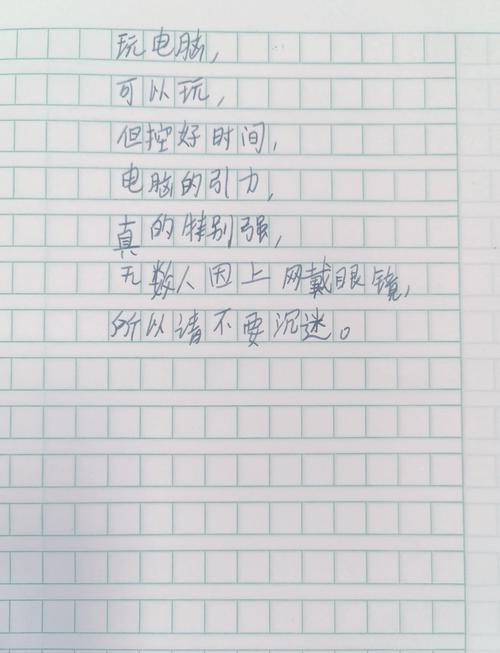 玩电脑,
可以玩,
但控好时间,
电脑的引力,
真的特别强,
无数人因上网戴眼镜,
所以请不要沉迷。